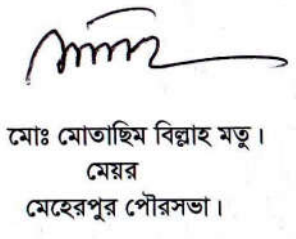 মোঃ মোতাছিম বিল্লাহ মতু।
মেয়র
মেহেরপুর পৌরসভা।